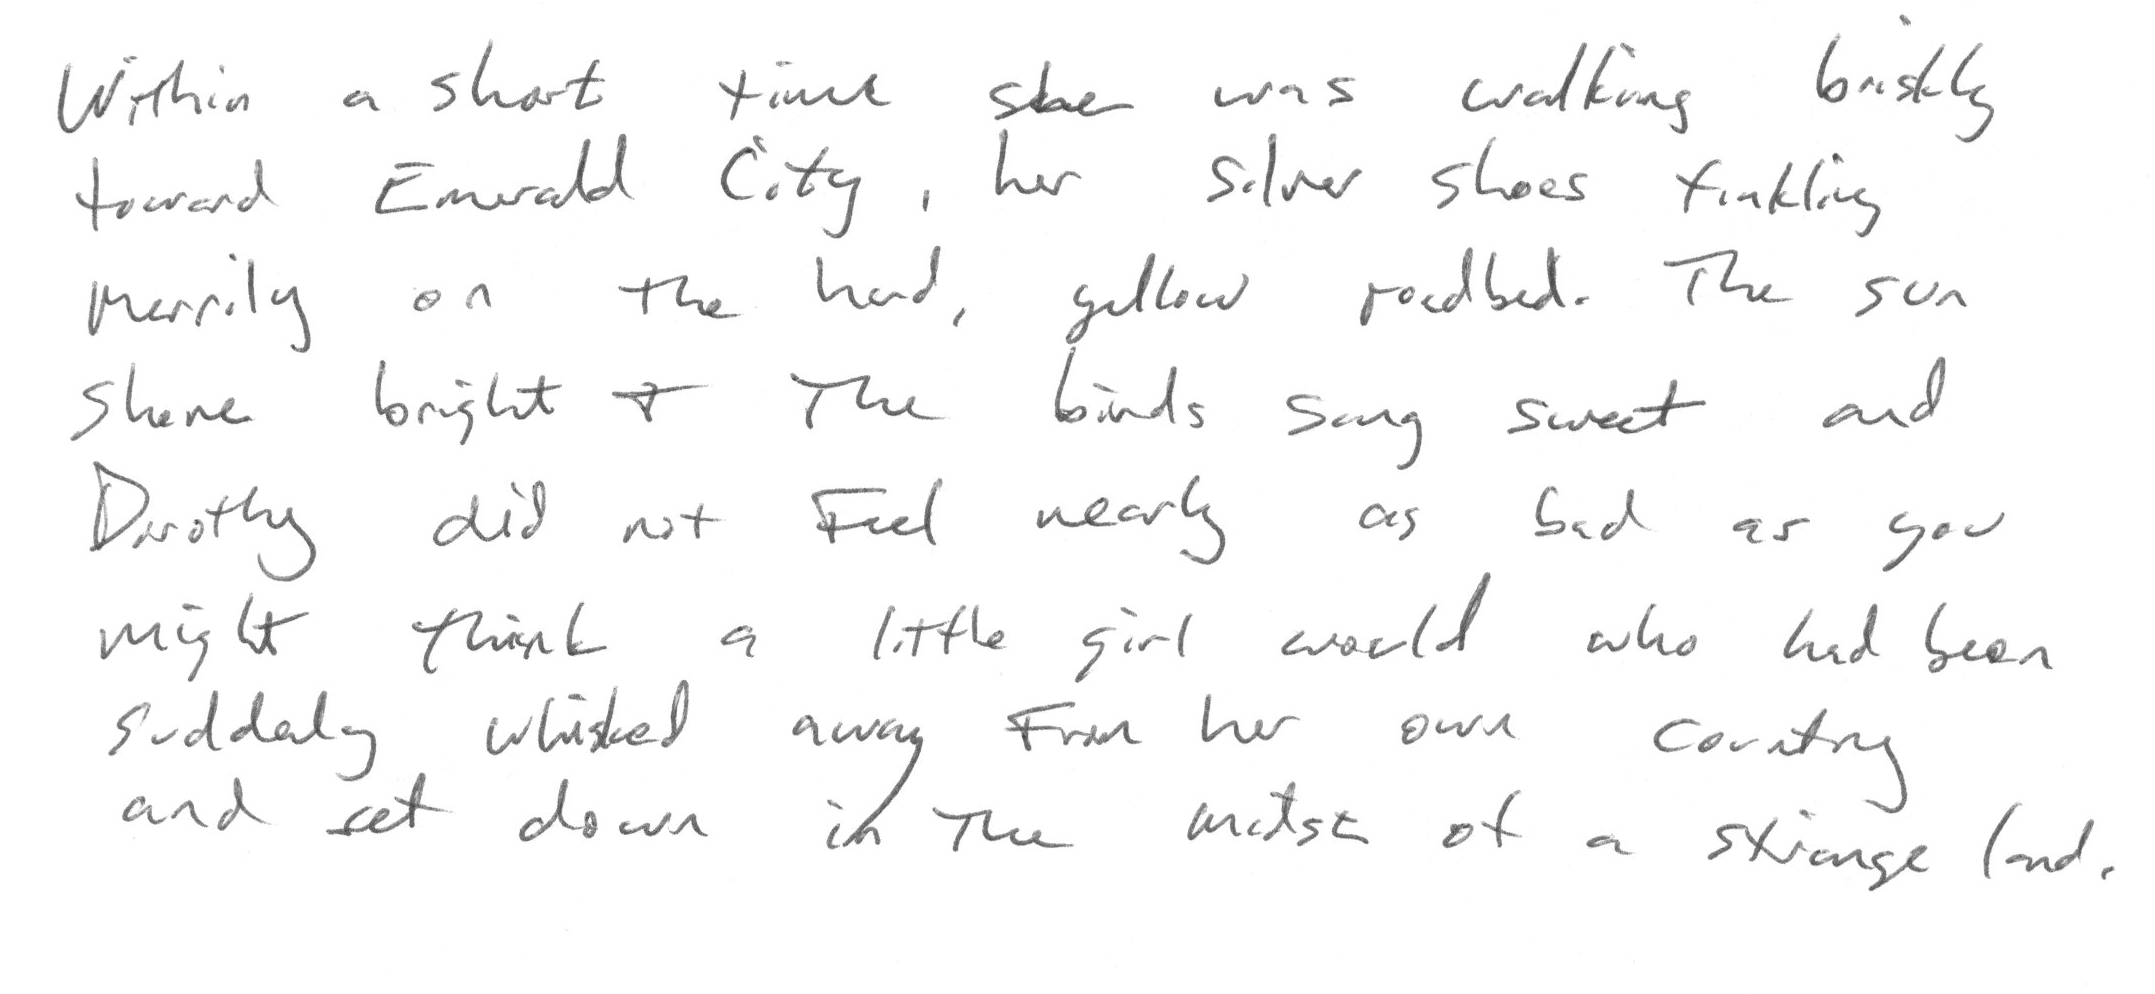 Within a short time she was walking briskly
toward Emerald City, her Silver Shoes tinkling
merrily on the hard, yellow roadbed. The sun
shone bright & The birds sang sweet and
Dorothy did not Feel nearly as bad as you
might think a little girl would who had been
suddenly whisked away From her own Country
and set down in The midst of a strange land.